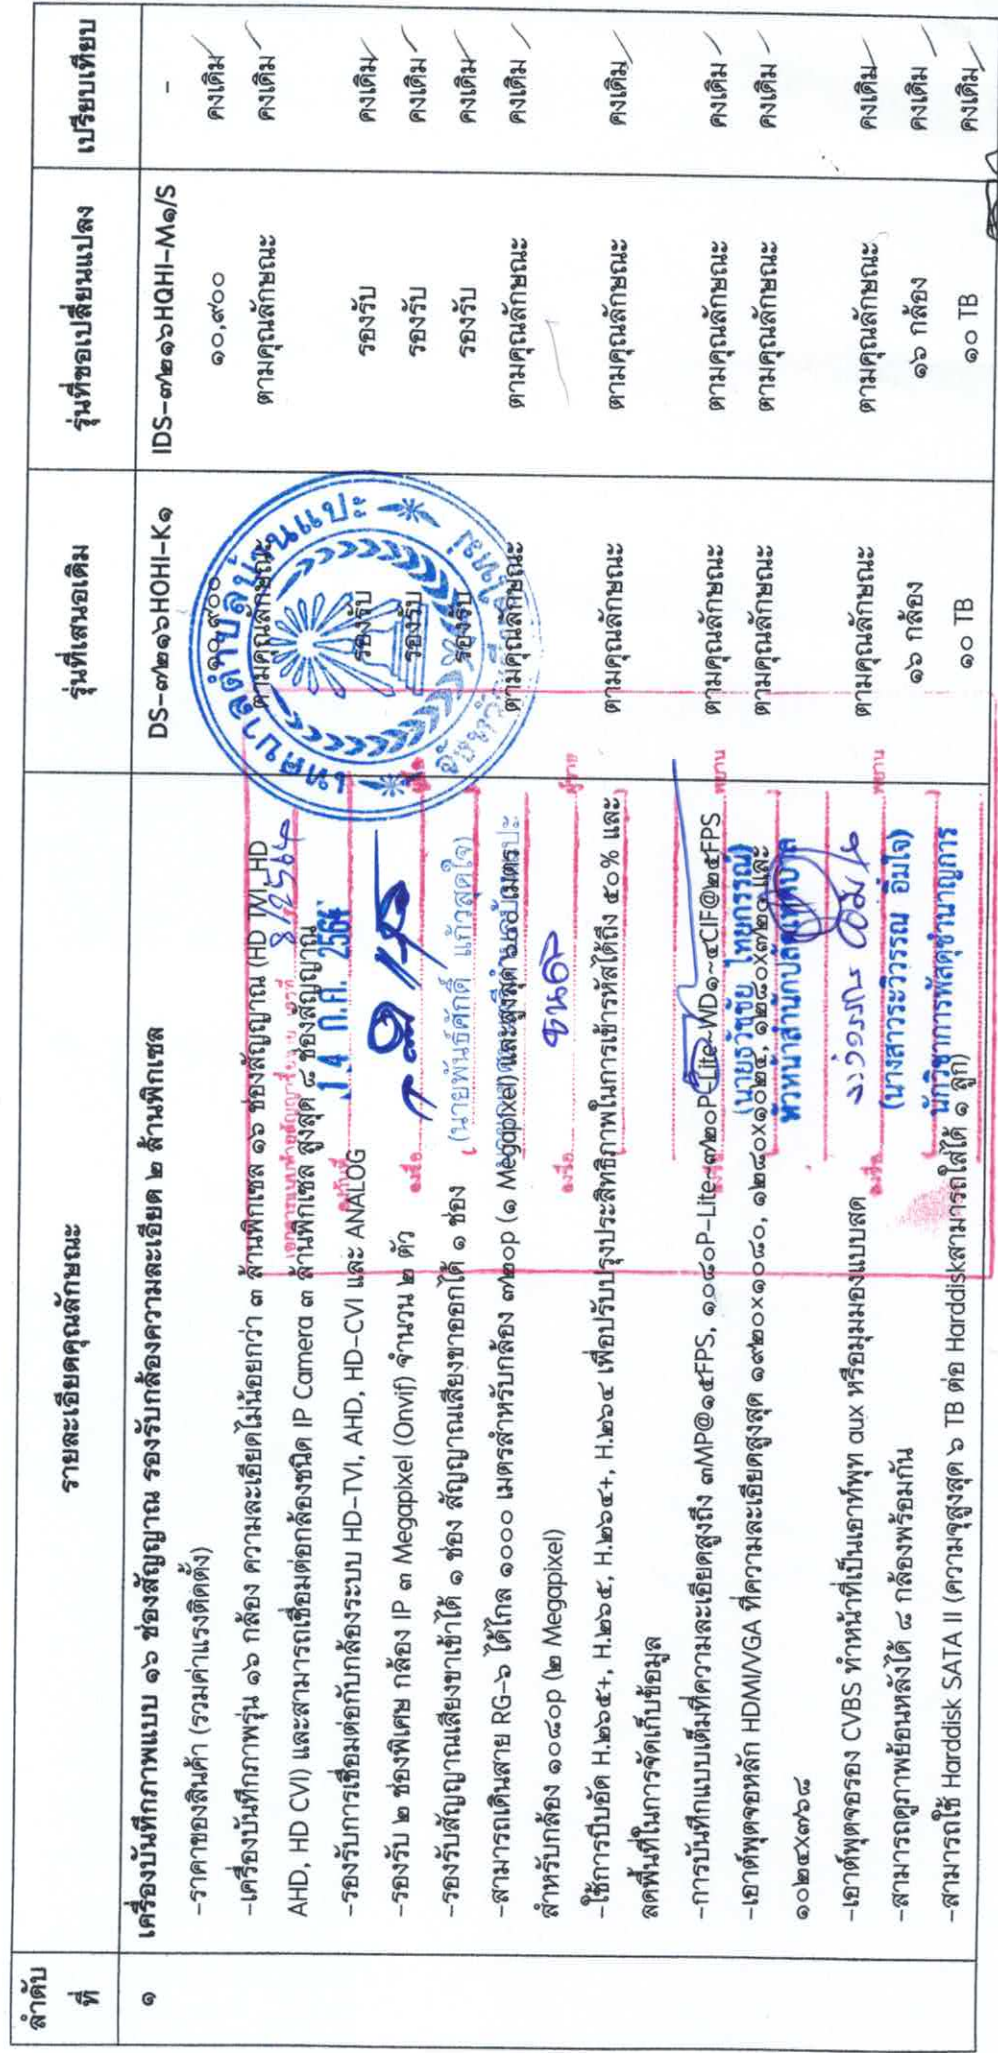 ลำดับ
ที่
รายละเอียดคุณลักษณะ
รุ่นที่เสนอเดิม
รุ่นที่ขอเปลี่ยนแปลง
เปรียบเทียบ
๑
เครื่องบันทึกภาพแบบ ๑๖ ช่องสัญญาณ รองรับกล้องความละเอียด ๒ ล้านพิกเซล
DS-๓/๒๑๖HOHI-K๑
IDS-๓/๒๑๖HQHI-M๑/S
-
-ราคาของสินค้า (รวมค่าแรงติดตั้ง)
๑๐,๙๐๐
๑๐,๙๐๐
คงเดิม
-เครื่องบันทึกภาพรุ่น ๑๖ กล้อง ความละเอียดไม่น้อยกว่า ๓ ล้านพิกเซล ๑๖ ช่องสัญญาณ (HD TVI, HD
ตามคุณลักษณะ
ตามคุณลักษณะ
คงเดิม
AHD, HD CVI) และสามารถเชื่อมต่อกล้องชนิด IP Camera ๓ ล้านพิกเซล สูงสุด ๘ ช่องสัญญาณ
-รองรับการเชื่อมต่อกับกล้องระบบ HD-TVI, AHD, HD-CVI และ ANALOG
รองรับ
รองรับ
คงเดิม
-รองรับ ๒ ช่องพิเศษ กล้อง IP ๓ Megapixel (Onvif) จำนวน ๒ ตัว
รองรับ
รองรับ
คงเดิม
-รองรับสัญญาณเสียงขาเข้าได้ ๑ ช่อง สัญญาณเสียงขาออกได้ ๑ ช่อง
รองรับ
รองรับ
คงเดิม
-สามารถเดินสาย RG-๖ ได้ไกล ๑๐๐๐ เมตรสำหรับกล้อง ๗๒๐p (๑ Megapixel) และสูงสุด เมตร
ตามคุณลักษณะ
ตามคุณลักษณะ
คงเดิม
สำหรับกล้อง ๑๐๘๐p (๒ Megapixel)
-ใช้การบีบอัด H.๒๖๕+, H.๒๖๕, H.๒๖๔+, H.๒๖๔ เพื่อปรับปรุงประสิทธิภาพในการเข้ารหัสได้ถึง ๕๐% และ
ตามคุณลักษณะ
ตามคุณลักษณะ
คงเดิม
ลดพื้นที่ในการจัดเก็บข้อมูล
-การบันทึกแบบเต็มที่ความละเอียดสูงถึง ๓MP@๑๕FPS, ๑๐๘๐P-Lite~๗๒๐P-Lite~WD๑~๔CIF@๒๕FPS
ตามคุณลักษณะ
ตามคุณลักษณะ
คงเดิม
-เอาต์พุตจอหลัก HDMI/VGA ที่ความละเอียดสูงสุด ๑๙๒๐x๑๐๘๐, ๑๒๘๐x๑๐๒๔, ๑๒๘๐x๗๒๐ และ
ตามคุณลักษณะ
ตามคุณลักษณะ
คงเดิม
๑๐๒๔X๗๖๘
-เอาต์พุตจอรอง CVBS ทำหน้าที่เป็นเอาท์พุท aux หรือมุมมองแบบสด
ตามคุณลักษณะ
ตามคุณลักษณะ
คงเดิม
-สามารถดูภาพย้อนหลังได้ ๘ กล้องพร้อมกัน
๑๖ กล้อง
๑๖ กล้อง
คงเดิม
-สามารถใช้ Harddisk SATA II (ความจุสูงสุด ๖ TB ต่อ Harddiskสามารถใส่ได้ ๑ ลูก)
๑๐ TB
๑๐ TB
คงเดิม
เทศบาลตำบลบ้านแปะ
8/2564
14 ก.ค. 2564
ลงชื่อ
(นายพันธ์ศักดิ์ แก้วสุดใจ)
ลงชื่อ ผู้ขาย
พยาน
(นายธวัชชัย ไทยกรรณ์)
หัวหน้าสำนักปลัดเทศบาล
ลงชื่อ พยาน
(นางสาวระวิวรรณ อิ่มใจ)
นักวิชาการพัสดุชำนาญการ